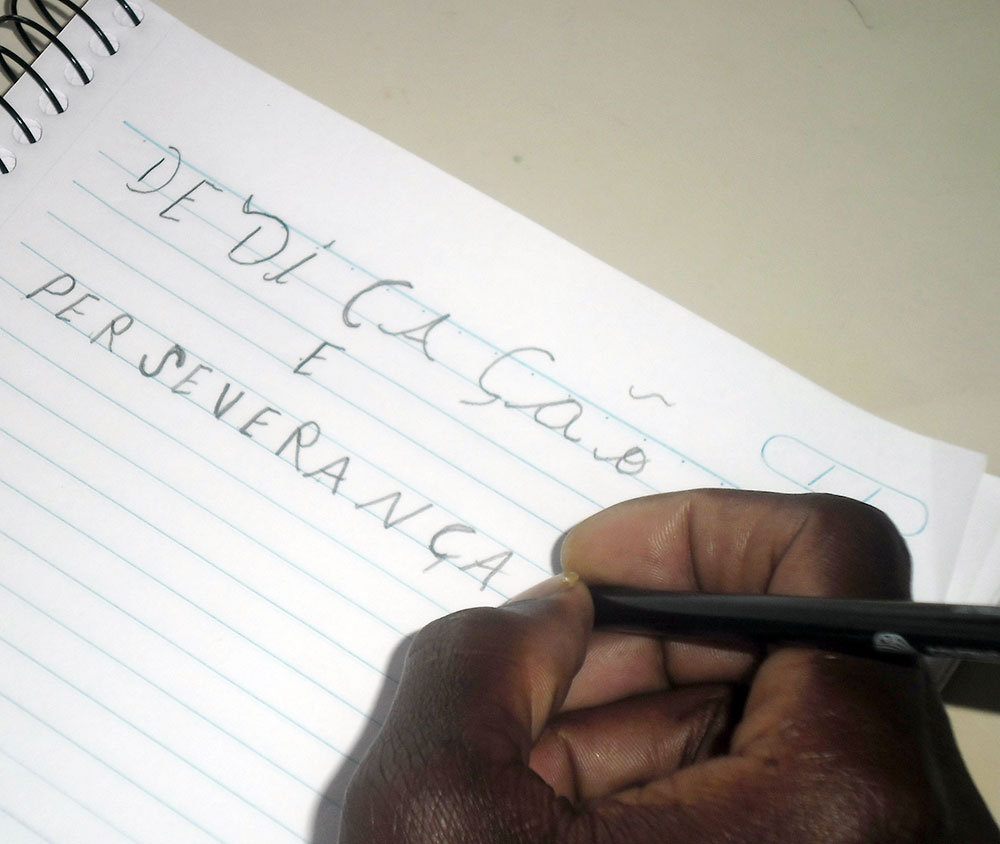 DEDiCAÇão
E
PERSEVERANÇA